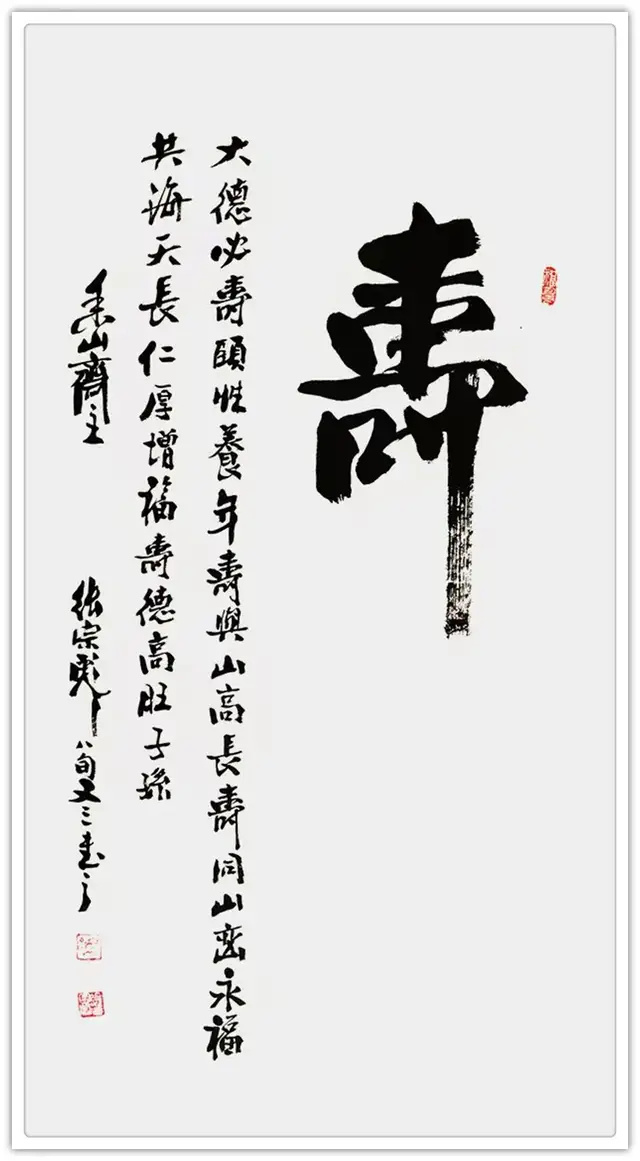 壽
大德必壽頤性養年壽與山高長壽同山巒永福
共海天長仁厚增福壽德高旺子孫
山齋主 張宗彪 八旬又三書之